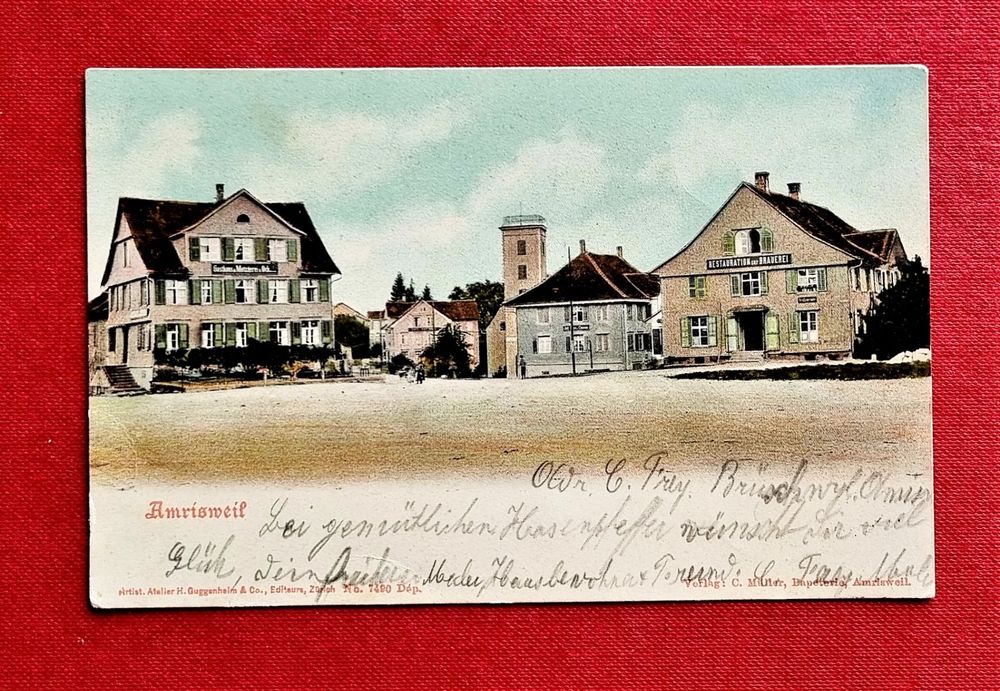 Gasthaus & Metzgerei z.
RESTAURATION ZUR BRAUEREI
Adr. C. Frey, Brüschwyl, Amris
Amrisweil
Bei gemütlichen Hasenpfeffer wünscht Dir viel
Glück, Dein früherer Hausbewohner & Freund. C.
Artist. Atelier H. Guggenheim & Co., Editeurs, Zürich No. 7490 Dép.
Verlag: C. Müller, Papeterie, Amrisweil.